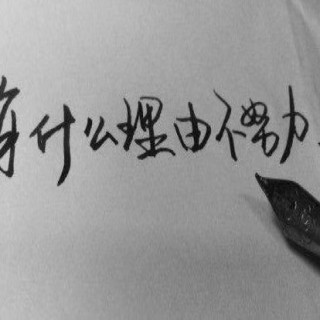 有什么理由不努力